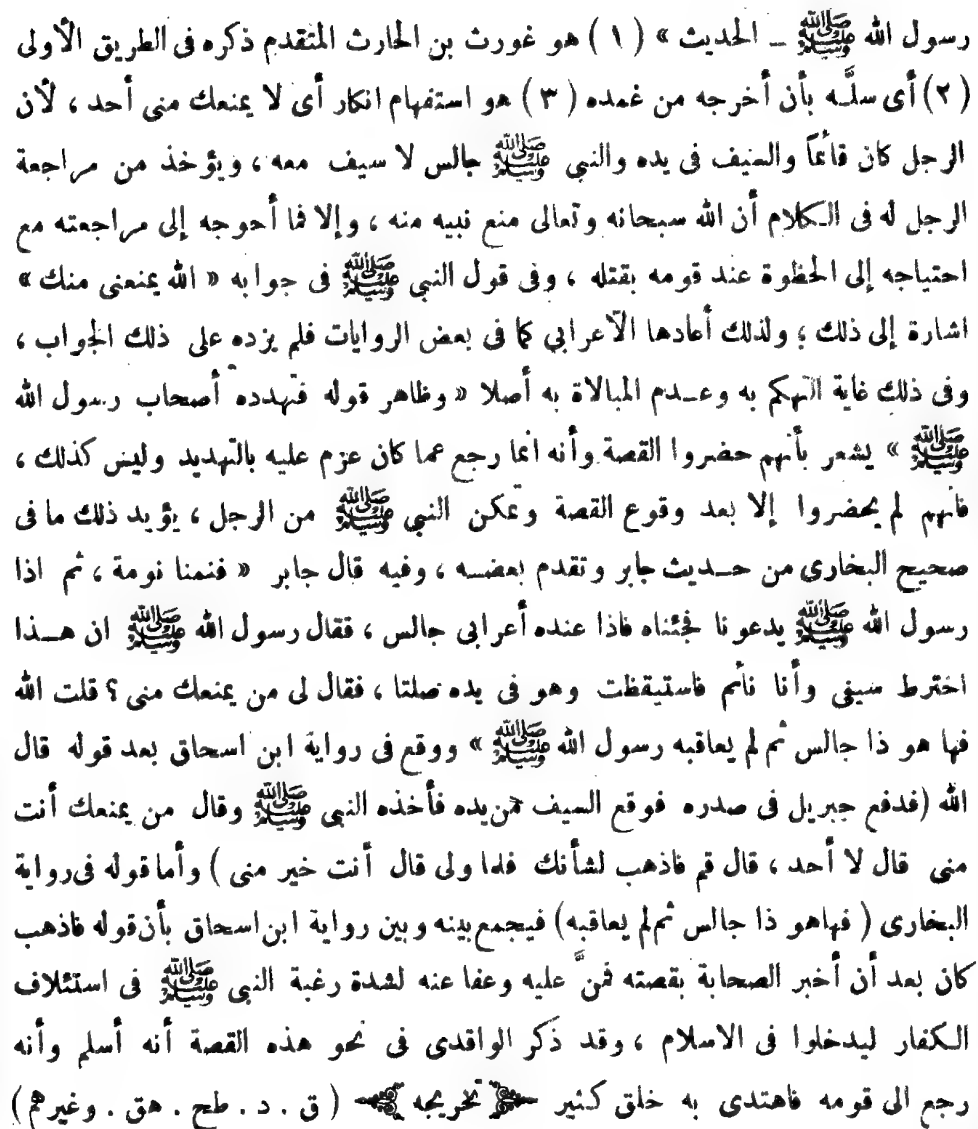 رسول الله ﷺ ــ الحديث » ( ١ ) هو غورث بن الحارث المتقدم ذكره فى الطريق الأولى
( ٢ ) أى سلَّه بأن أخرجه من غمده ( ٣ ) هو استفهام انكار أى لا يمنعك منى أحد ، لأن
الرجل كان قائماً والسيف فى يده والنبى ﷺ جالس لا سيف معه ، ويؤخذ من مراجعة
الرجل له فى الكلام أن الله سبحانه وتعالى منع نبيه منه ، وإلا فما أحوجه إلى مراجعته مع
احتياجه إلى الحظوة عند قومه بقتله ، وفى قول النبى ﷺ فى جوابه « الله يمنعنى منك »
اشارة إلى ذلك ؛ ولذلك أعادها الأعرابي كما فى بعض الروايات فلم يزده على ذلك الجواب ،
وفى ذلك غاية التهكم به وعـدم المبالاة به أصلا « وظاهر قوله فتهدده أصحاب رسول الله
ﷺ » يشعر بأنهم حضروا القصة وأنه انما رجع عما كان عزم عليه بالتهديد وليس كذلك ،
فأنهم لم يحضروا إلا بعد وقوع القصة وتمكن النبي ﷺ من الرجل ، يؤيد ذلك ما فى
صحيح البخارى من حـديث جابر وتقدم بعضـه ، وفيه قال جابر « فنمنا نومة ، ثم اذا
رسول الله ﷺ يدعونا فجئناه فاذا عنده أعرابى جالس ، فقال رسول الله ﷺ ان هـذا
اخترط سيفى وأنا نائم فاستيقظت وهو فى يده صلتا ، فقال لى من يمنعك منى ؟ قلت الله
فها هو ذا جالس ثم لم يعاقبه رسول الله ﷺ » ووقع فى رواية ابن اسحاق بعد قوله قال
الله (فدفع جبريل فى صدره فوقع السيف من يده فأخذه النبى ﷺ وقال من يمنعك أنت
منى قال لا أحد ، قال قم فاذهب لشأنك فلما ولى قال أنت خير منى ) وأما قوله فى رواية
البخارى ( فهاهو ذا جالس ثم لم يعاقبه) فيجمع بينه وبين رواية ابن اسحاق بأن قوله فاذهب
كان بعد أن أخبر الصحابة بقصته فمنَّ عليه وعفا عنه لشدة رغبة النبى ﷺ فى استئلاف
الكفار ليدخلوا فى الاسلام ، وقد ذكر الواقدى فى نحو هذه القصة أنه أسلم وأنه
رجع الى قومه فاهتدى به خلق كثير تخريجه ( ق . د . طح . هق . وغيرهم )